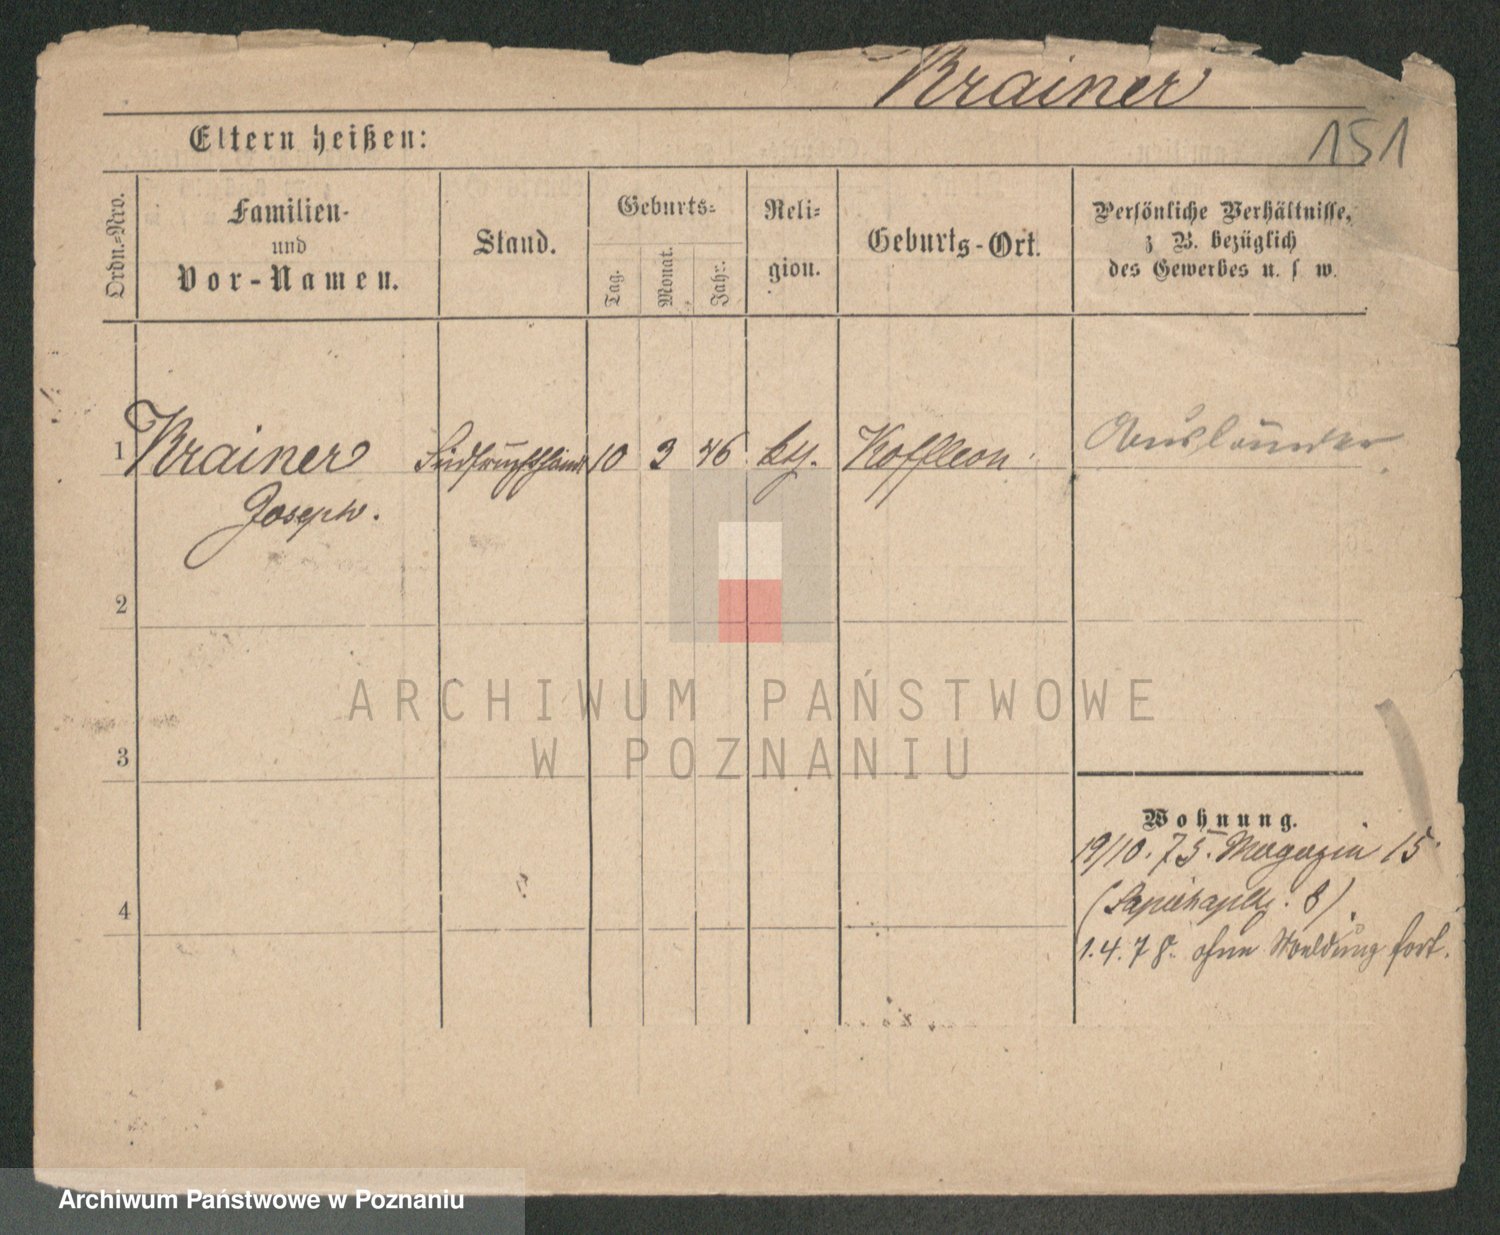 Krainer
151
Eltern heißen:
Ordn.-Nro.
Familien-
und
Vor-Namen.
Stand.
Geburts-
Tag.
Monat.
Jahr.
Reli-
gion.
Geburts-Ort.
Persönliche Verhältnisse,
z. B. bezüglich
des Gewerbes u. s. w.
1 Krainer Südfruchthändl 10 3 46 Koffleon Ausländer
Joseph.
2
3
4
Wohnung.
19/10. 75. Magazin 15
(Sapiehapltz. 8)
1.4.78. ohne Meldung fort.
ARCHIWUM PAŃSTWOWE
W POZNANIU
Archiwum Państwowe w Poznaniu